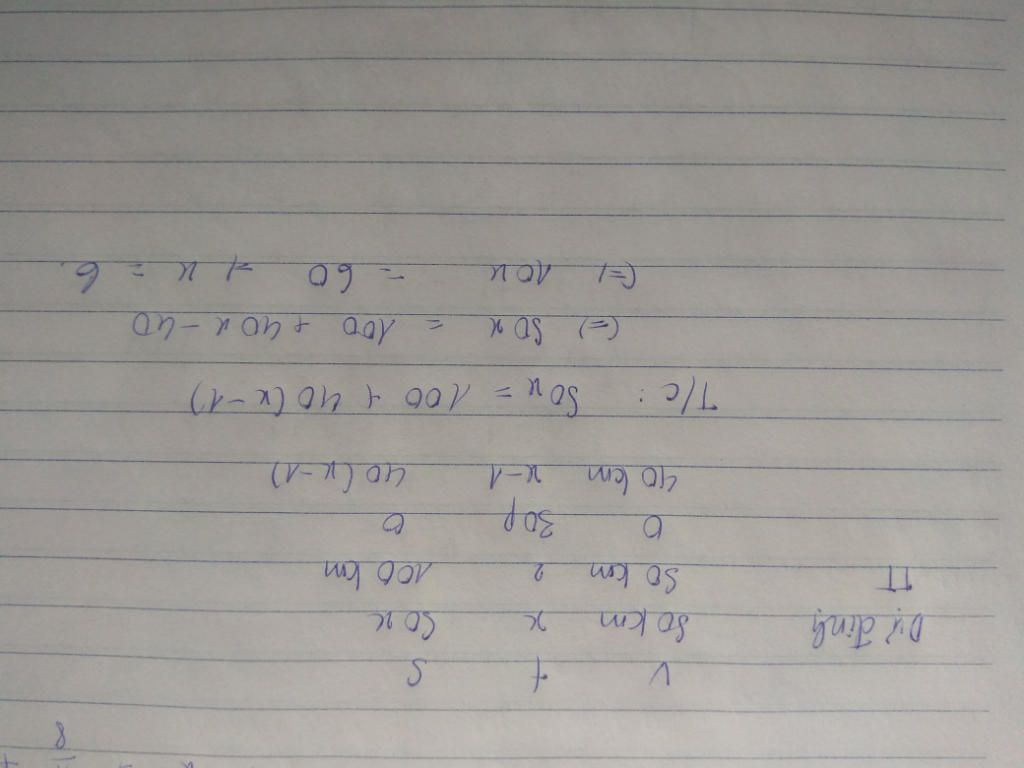 8
V t S
Dự định 50 km x 50x
TT 50 km 2 100 km
0 30p 0
40 km x-1 40(x-1)
T/c : 50x = 100 + 40(x-1)
(=) 50x = 100 + 40x - 40
(=) 10x = 60 → x = 6.